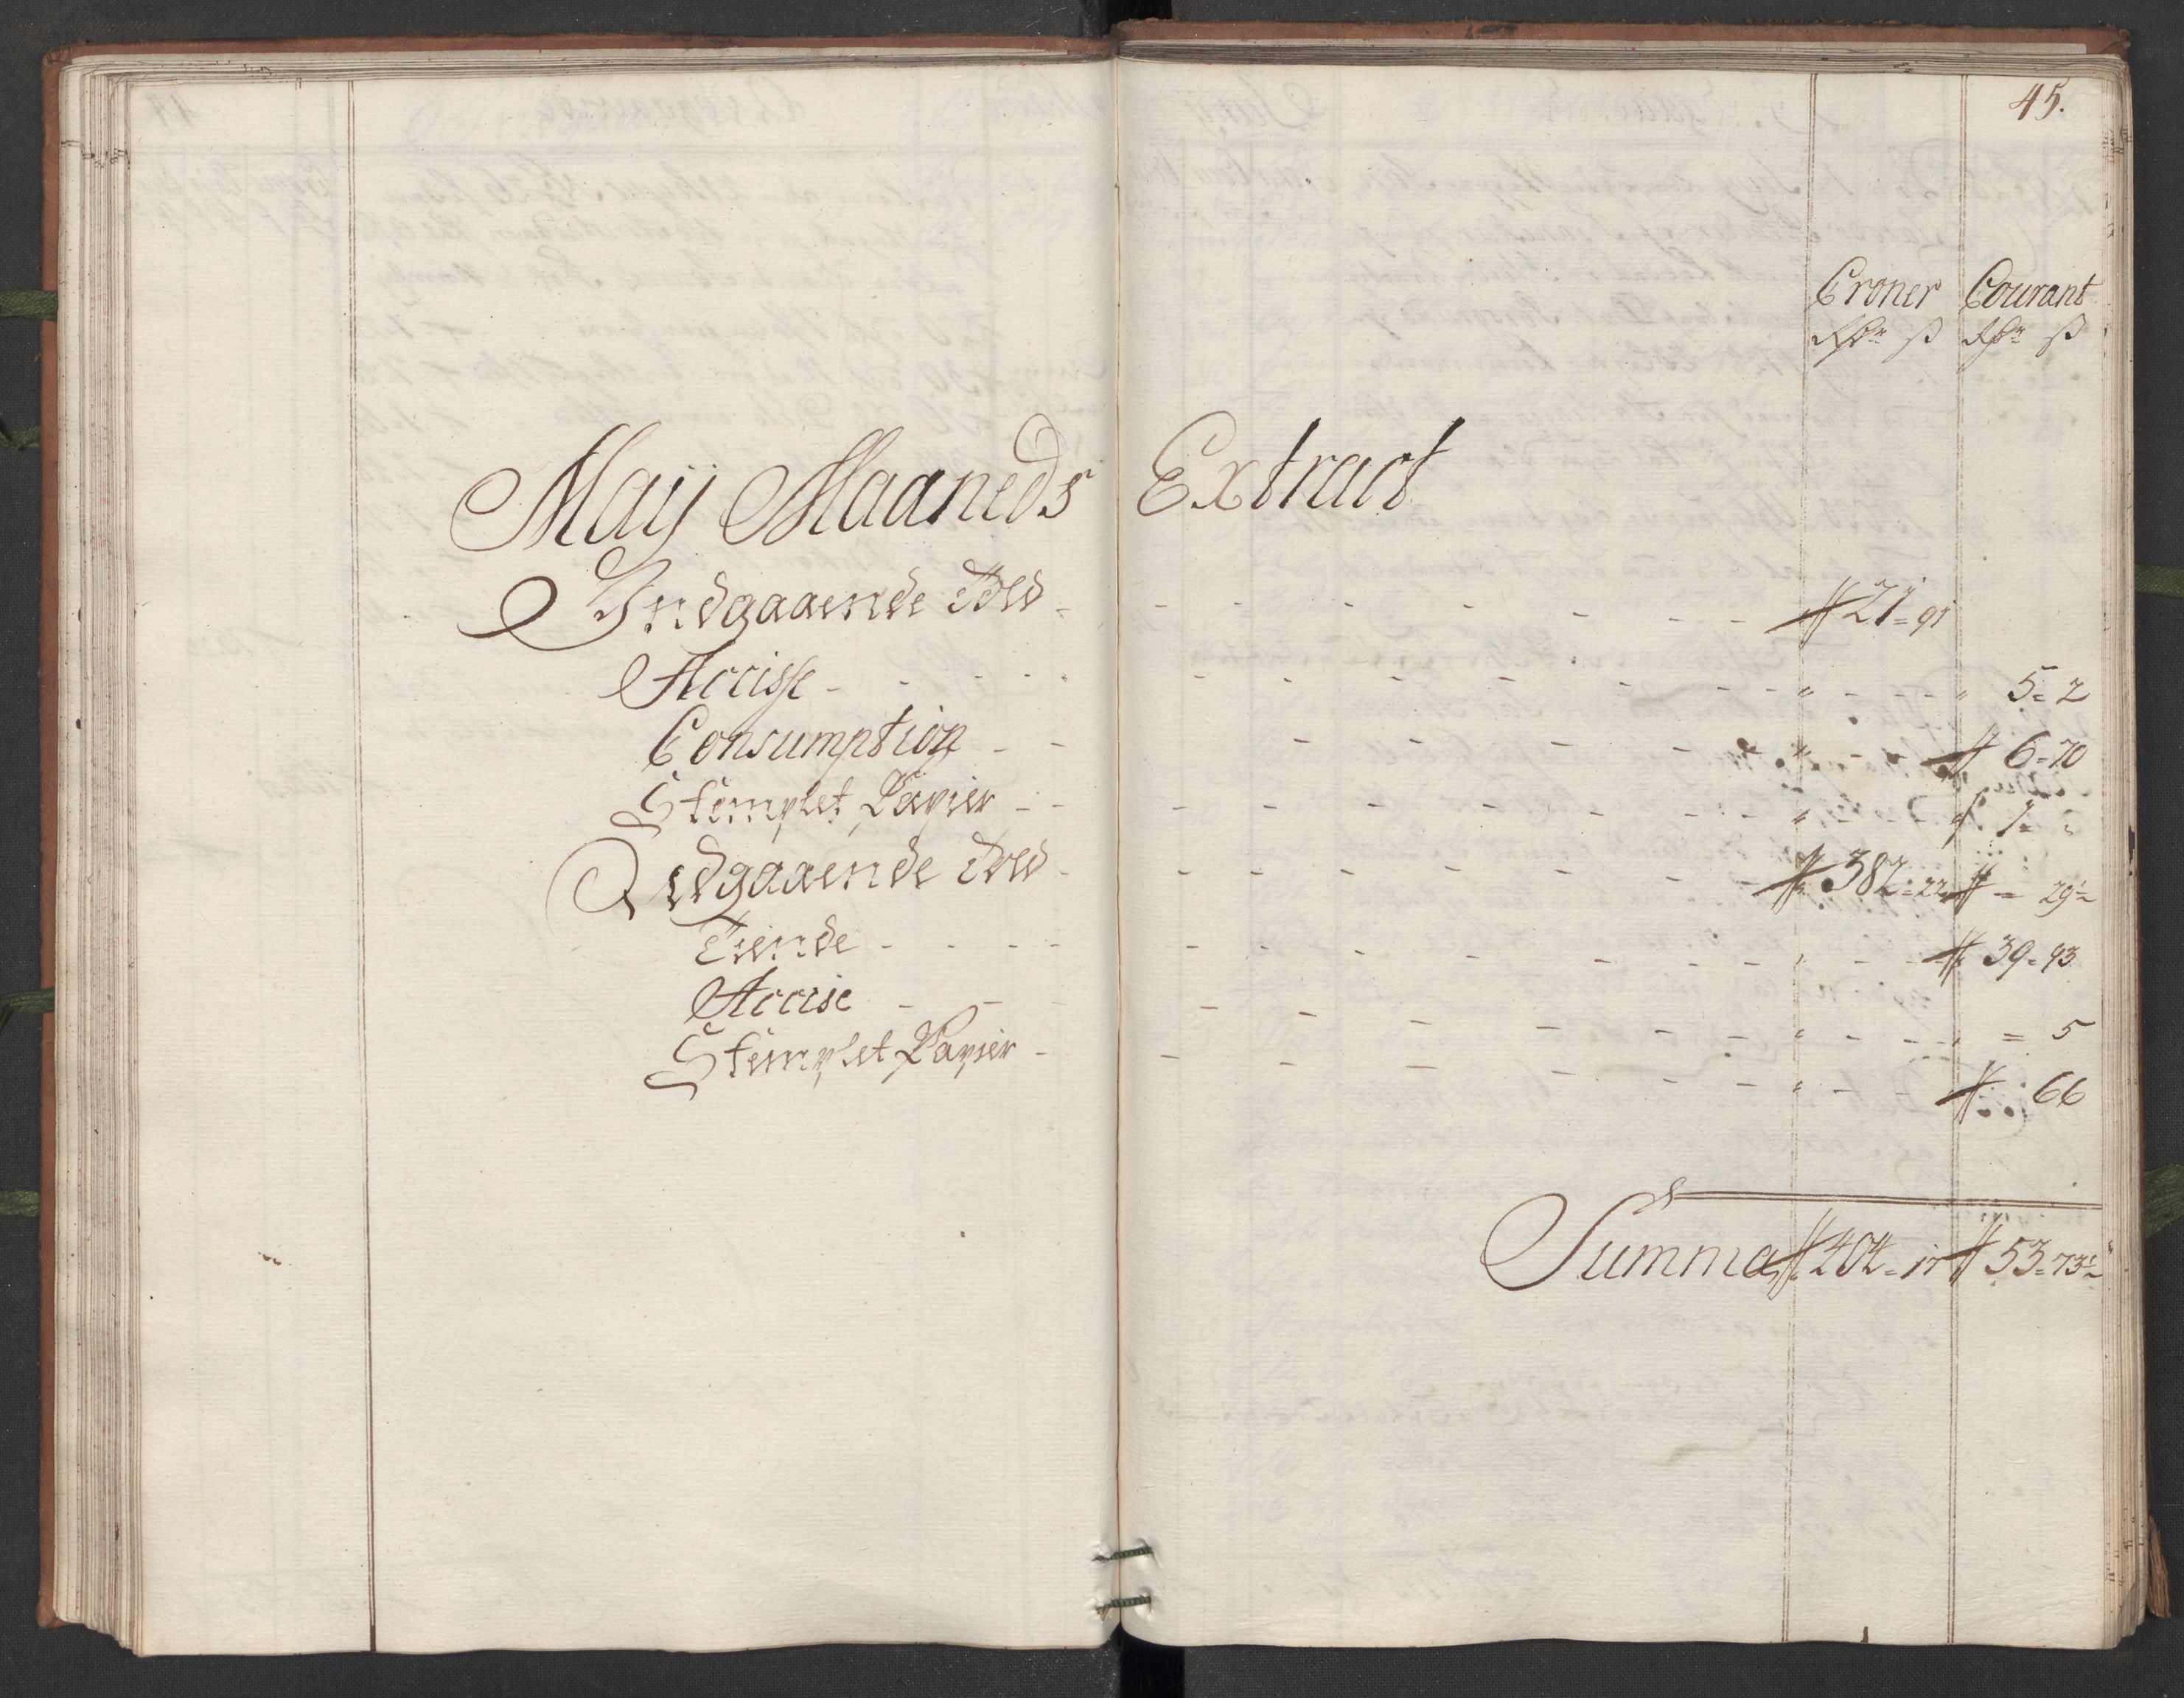 45.
Croner Courant
Rdr ß Rdr ß
Maij Maaneds Extract
Indgaaende Told - - - - - - - - 21 = 91
Accisse - - - - - - - - - - - " - - - - " 5 = 2
Consumption - - - - - - - - " - - 6 = 70
Stemplet Papier - - - - - - - - - " - - - 1 = "
Udgaaende Told - - - - - - - 382 = 22 = 29½
Tiende - - - - - - - - - - " - - - 39 = 93
Accise - - - - - - - - - " - - - - " = 5
Stemplet Papier - - - - - - - " - - - 66
Summa 404 = 17 53 = 73½